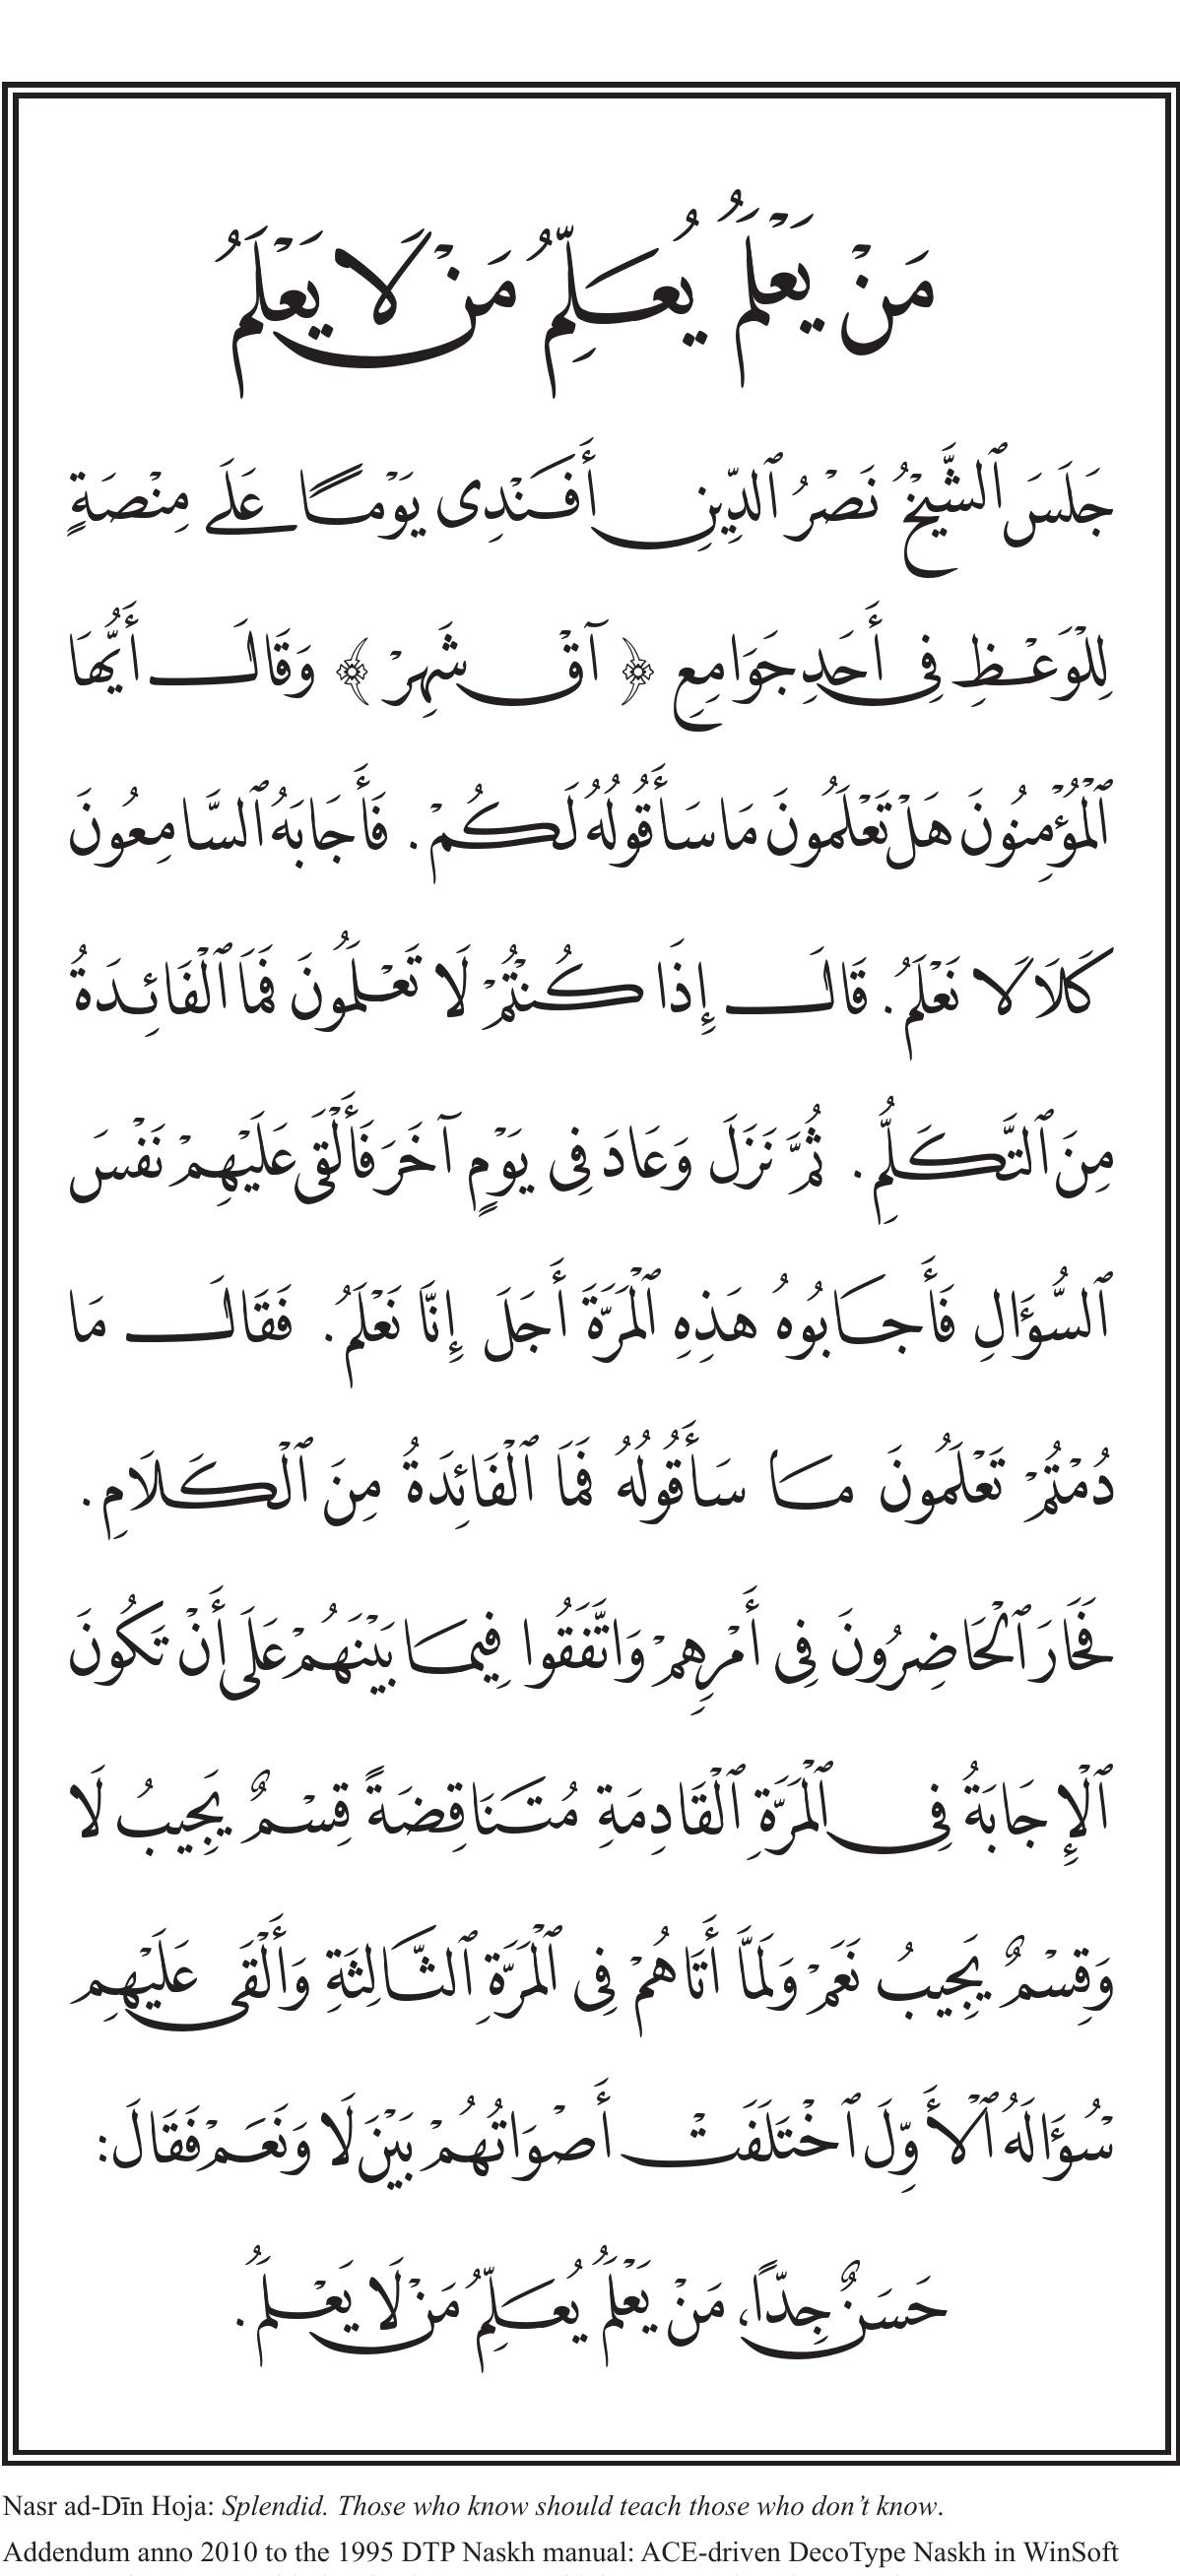 مَنْ يَعْلَمُ يُعَلِّمُ مَنْ لَا يَعْلَمُ
جَلَسَ ٱلشَّيْخُ نَصْرُ ٱلدِّينِ أَفَنْدِى يَوْمًا عَلَے مِنْصَةٍ
لِلْوَعْظِ فِى أَحَدِ جَوَامِعِ ﴿ آقْ شَهِرْ ﴾ وَقَالَ أَيُّهَا
ٱلْمُؤْمِنُونَ هَلْ تَعْلَمُونَ مَا سَأَقُولُهُ لَكُمْ. فَأَجَابَهُ ٱلسَّامِعُونَ
كَلَا لَا نَعْلَمُ. قَالَ إِذَا كُنْتُمْ لَا تَعْلَمُونَ فَمَا ٱلْفَائِدَةُ
مِنَ ٱلتَّكَلُّمِ. ثُمَّ نَزَلَ وَعَادَ فِى يَوْمٍ آخَرَ فَأَلْقَى عَلَيْهِمْ نَفْسَ
ٱلسُّؤَالِ فَأَجَابُوهُ هَذِهِ ٱلْمَرَّةَ أَجَلَ إِنَّا نَعْلَمُ. فَقَالَ مَا
دُمْتُمْ تَعْلَمُونَ مَا سَأَقُولُهُ فَمَا ٱلْفَائِدَةُ مِنَ ٱلْكَلَامِ.
فَحَارَ ٱلْحَاضِرُونَ فِى أَمْرِهِمْ وَاتَّفَقُوا فِيمَا بَيْنَهُمْ عَلَى أَنْ تَكُونَ
ٱلْإِجَابَةُ فِى ٱلْمَرَّةِ ٱلْقَادِمَةِ مُتَنَاقِضَةً قِسْمٌ يَجِيبُ لَا
وَقِسْمٌ يَجِيبُ نَعَمْ وَلَمَّا أَتَاهُمْ فِى ٱلْمَرَّةِ ٱلثَّالِثَةِ وَأَلْقَى عَلَيْهِم
سُؤَالَهُ ٱلْأَوِّلَ ٱخْتَلَفَتْ أَصْوَاتُهُمْ بَيْنَ لَا وَنَعَمْ فَقَالَ:
حَسَنٌ جِدًّا، مَنْ يَعْلَمُ يُعَلِّمُ مَنْ لَا يَعْلَمُ.
Nasr ad-Dīn Hoja: Splendid. Those who know should teach those who don’t know.
Addendum anno 2010 to the 1995 DTP Naskh manual: ACE-driven DecoType Naskh in WinSoft